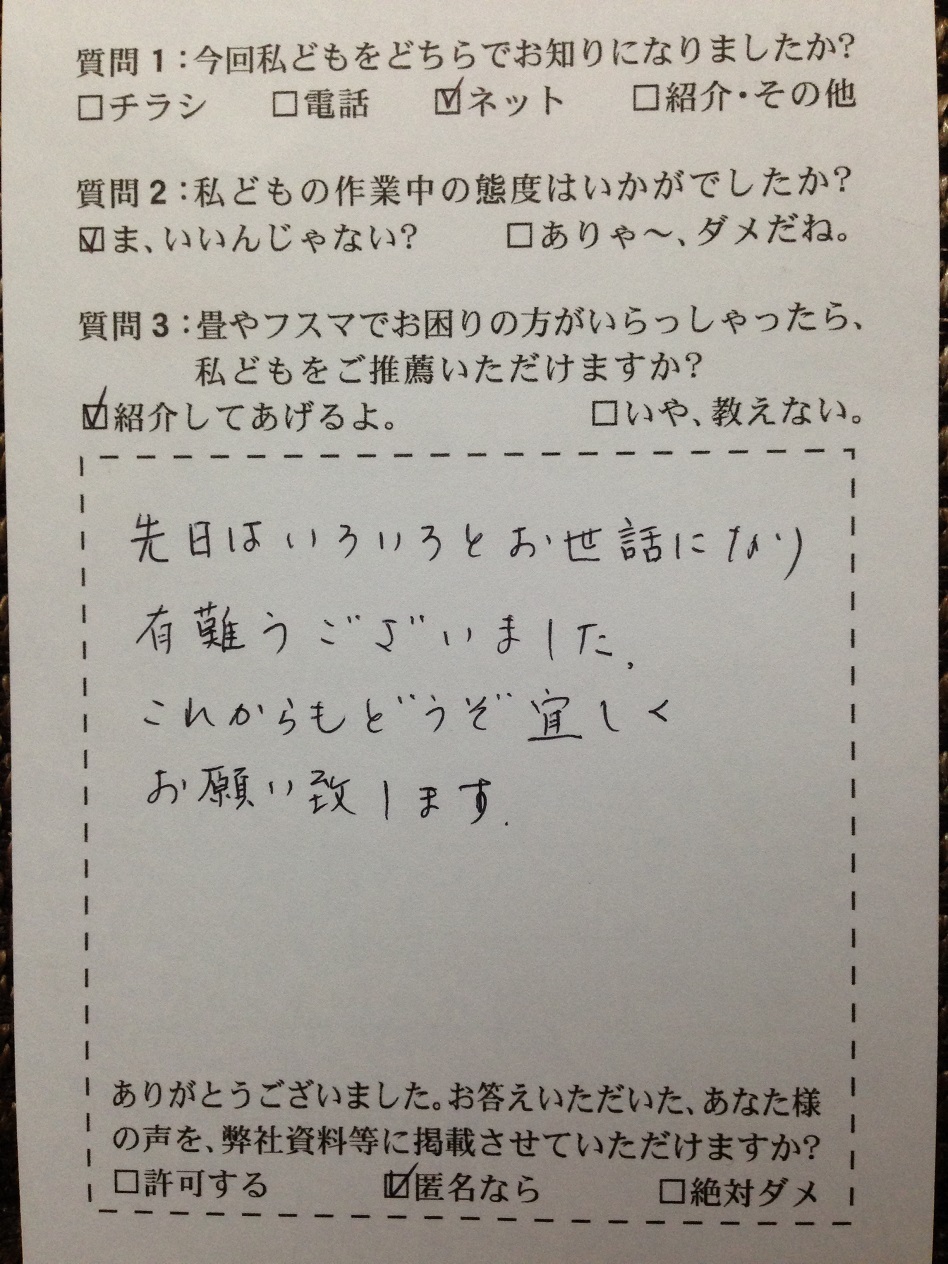 質問1：今回私どもをどちらでお知りになりましたか？
□チラシ □電話 ☑ネット □紹介・その他
質問2：私どもの作業中の態度はいかがでしたか？
☑ま、いいんじゃない？ □ありゃ～、ダメだね。
質問3：畳やフスマでお困りの方がいらっしゃったら、
私どもをご推薦いただけますか？
☑紹介してあげるよ。 □いや、教えない。
先日はいろいろとお世話になり
有難うございました。
これからもどうぞ宜しく
お願い致します。
ありがとうございました。お答えいただいた、あなた様
の声を、弊社資料等に掲載させていただけますか？
□許可する ☑匿名なら □絶対ダメ